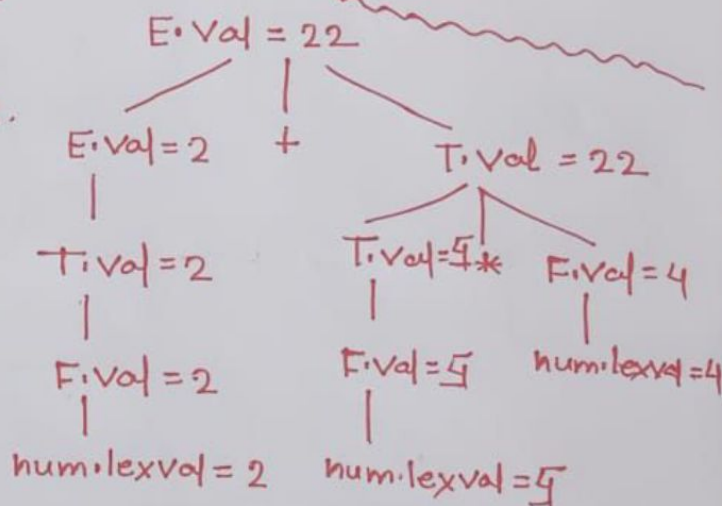 E.Val = 22
E.Val = 2 + T.Val = 22
T.val = 2 T.val = 5 * F.Val = 4
F.Val = 2 F.Val = 5 num.lexval = 4
num.lexval = 2 num.lexval = 5